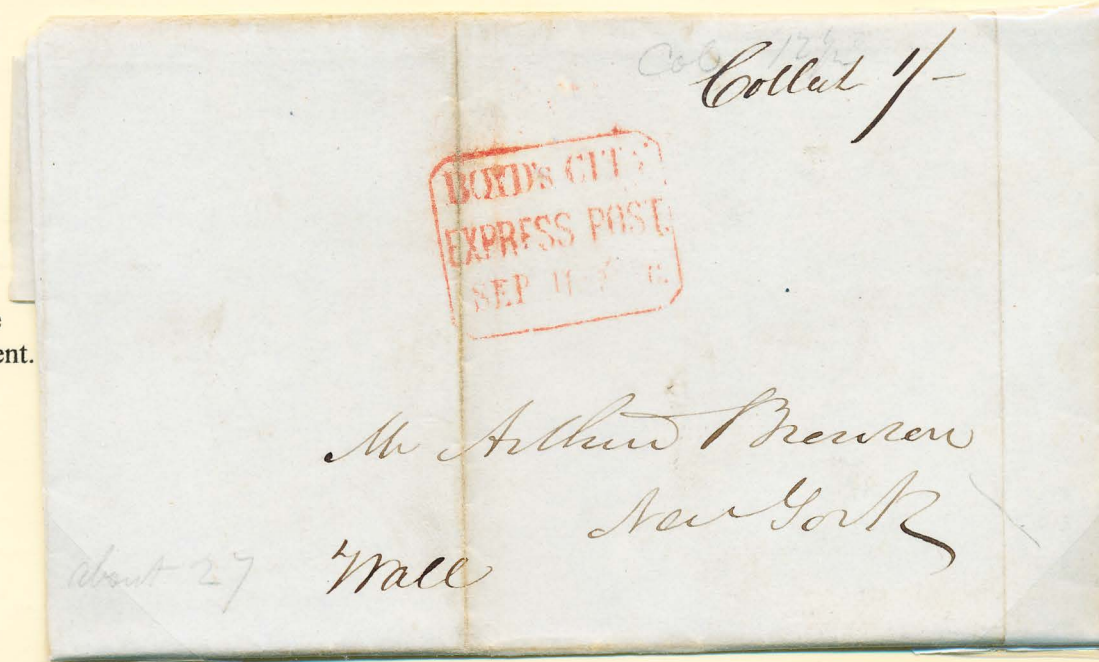 Col 12½
Collect 1/-
BOYD's CITY
EXPRESS POST.
SEP 11
ent.
Mr Arthur Bronson
New York
about 27
Wall